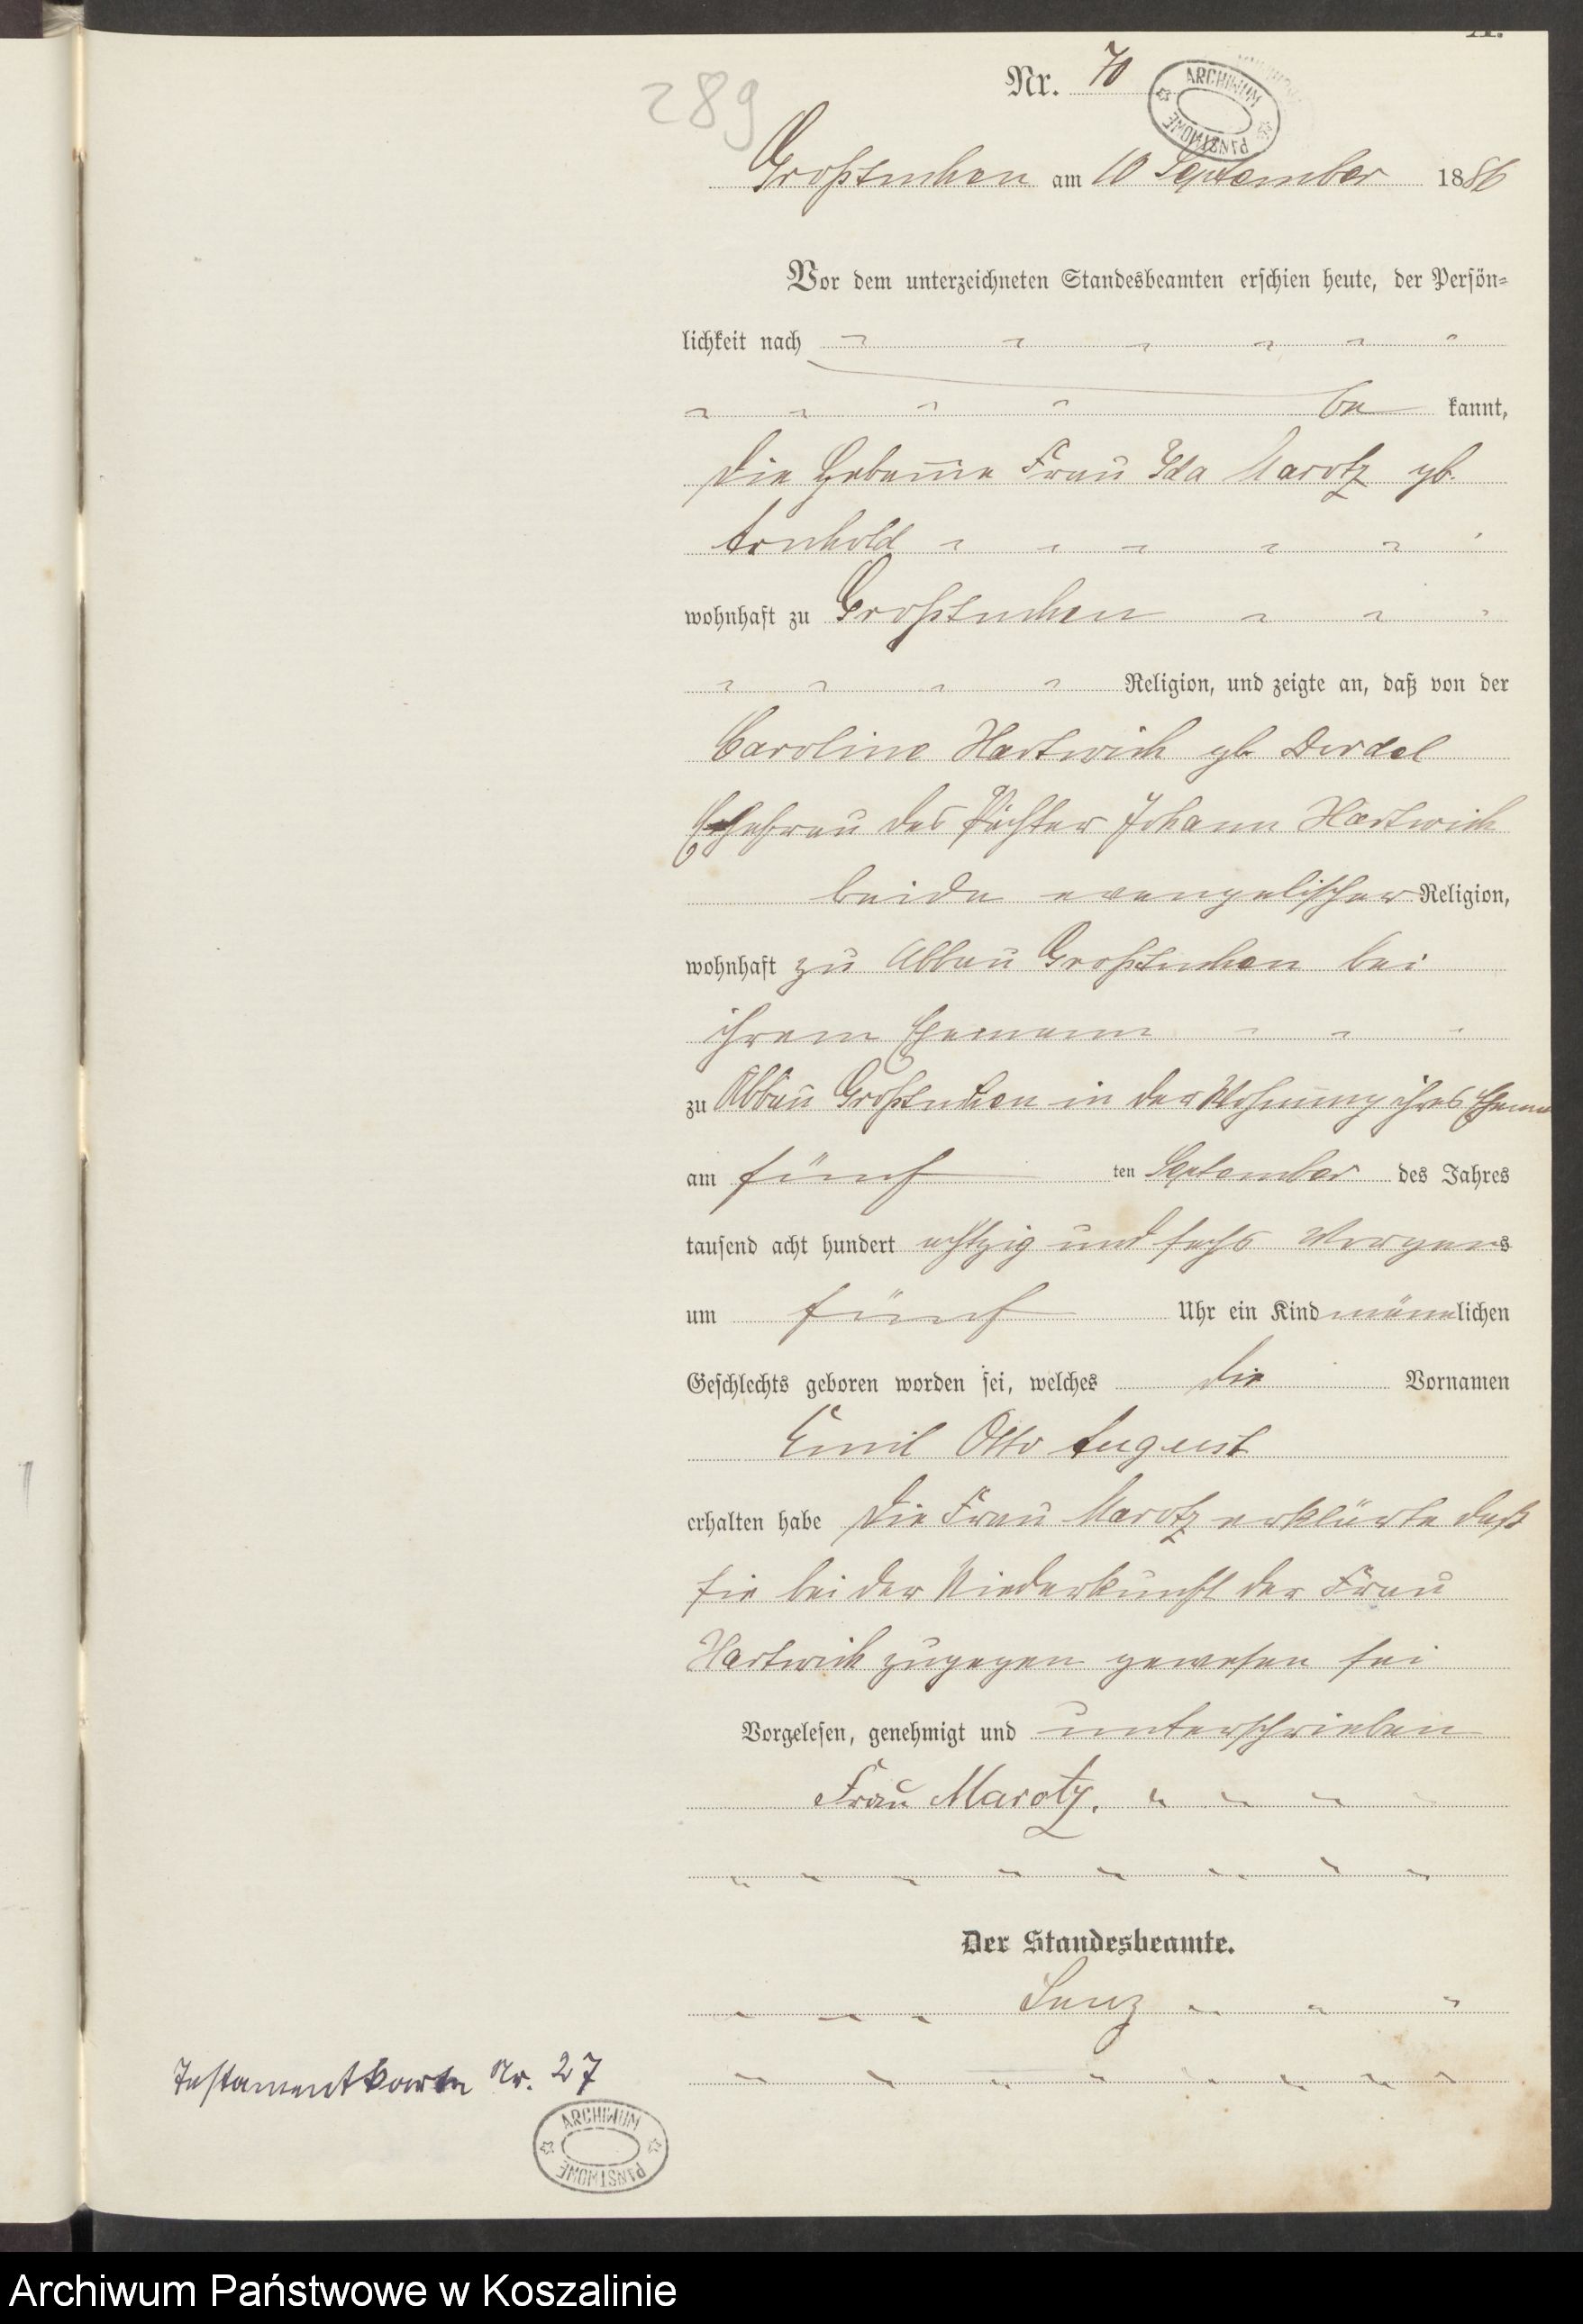 A.
289
Nr. 70
ARCHIWUM PAŃSTWOWE
Großtuchen am 10 September 1886
Vor dem unterzeichneten Standesbeamten erschien heute, der Persön-
lichkeit nach
be kannt,
die Hebam̅e Frau Ida Marotz gb.
Arnhold
wohnhaft zu Großtuchen
Religion, und zeigte an, daß von der
Caroline Hartwich gb
Ehefrau des Pächter Johann Hartwich
beide evangelischer Religion,
wohnhaft zu Abbau Großtuchen bei
ihrem Ehemann
zu Abbau Großtuchen in der Wohnung ihres Ehem
am fünf ten September des Jahres
tausend acht hundert achtzig und sechs Morgens
um fünf Uhr ein Kind männlichen
Geschlechts geboren worden sei, welches die Vornamen
Emil Otto August
erhalten habe Die Frau Marotz erklärte daß
sie bei der Niederkunft der Frau
Hartwich zugegen gewesen sei
Vorgelesen, genehmigt und unterschrieben
Frau Marotz.
Der Standesbeamte.
Testamentkarte Nr. 27
ARCHIWUM PAŃSTWOWE
Archiwum Państwowe w Koszalinie